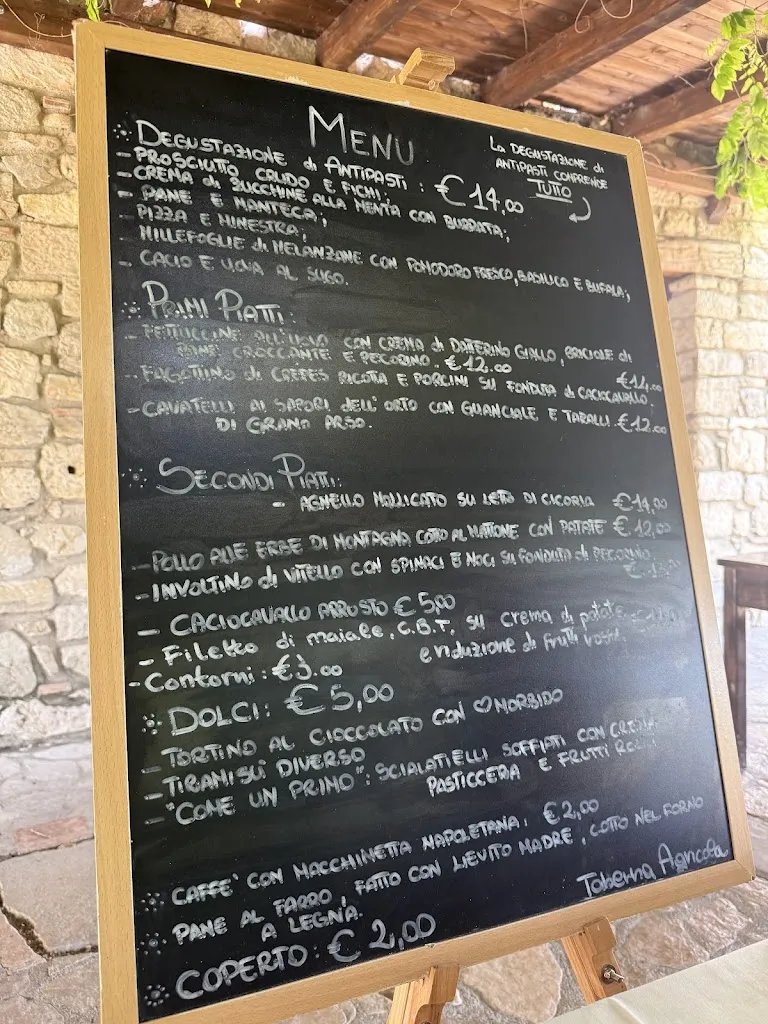 MENU
La DEGUSTAZIONE di
ANTIPASTI COMPRENDE
TUTTO
DEGUSTAZIONE di ANTIPASTI : €14,00
- PROSCIUTTO CRUDO E FICHI;
- CREMA di ZUCCHINE ALLA MENTA CON BURRATA;
- PANE E MANTECA;
- PIZZA E MINESTRA;
- MILLEFOGLIE di MELANZANE CON POMODORO FRESCO, BASILICO E BUFALA;
- CACIO E UOVA AL SUGO.
PRIMI PIATTI:
- FETTUCCINE ALL'UOVO CON CREMA di DATTERINO GIALLO, BRICIOLE di
PANE CROCCANTE E PECORINO. €12.00
- FAGOTTINO di CREPES RICOTTA E PORCINI SU FONDUTA di CACIOCAVALLO. €14.00
- CAVATELLI AI SAPORI DELL'ORTO CON GUANCIALE E TARALLI €12.00
DI GRANO ARSO.
SECONDI PIATTI:
- AGNELLO MOLLICATO SU LETTO DI CICORIA €14,00
- POLLO ALLE ERBE DI MONTAGNA COTTO AL MATTONE CON PATATE €12,00
- INVOLTINO di VITELLO CON SPINACI E NOCI SU FONDUTA di PECORINO.
- CACIOCAVALLO ARROSTO €5,00
- Filetto di maiale C.B.T. su crema di patate
e riduzione di frutti rossi
- Contorni: €3.00
DOLCI: €5,00
- TORTINO AL CIOCCOLATO CON ♡ MORBIDO
- TIRAMISU' DIVERSO
- "COME UN PRIMO": SCIALATIELLI SOFFIATI CON CREMA
PASTICCERA E FRUTTI ROSSI
CAFFE' CON MACCHINETTA NAPOLETANA: €2,00
PANE AL FARRO, FATTO CON LIEVITO MADRE, COTTO NEL FORNO
A LEGNA.
Taberna Agricola
COPERTO: €2,00